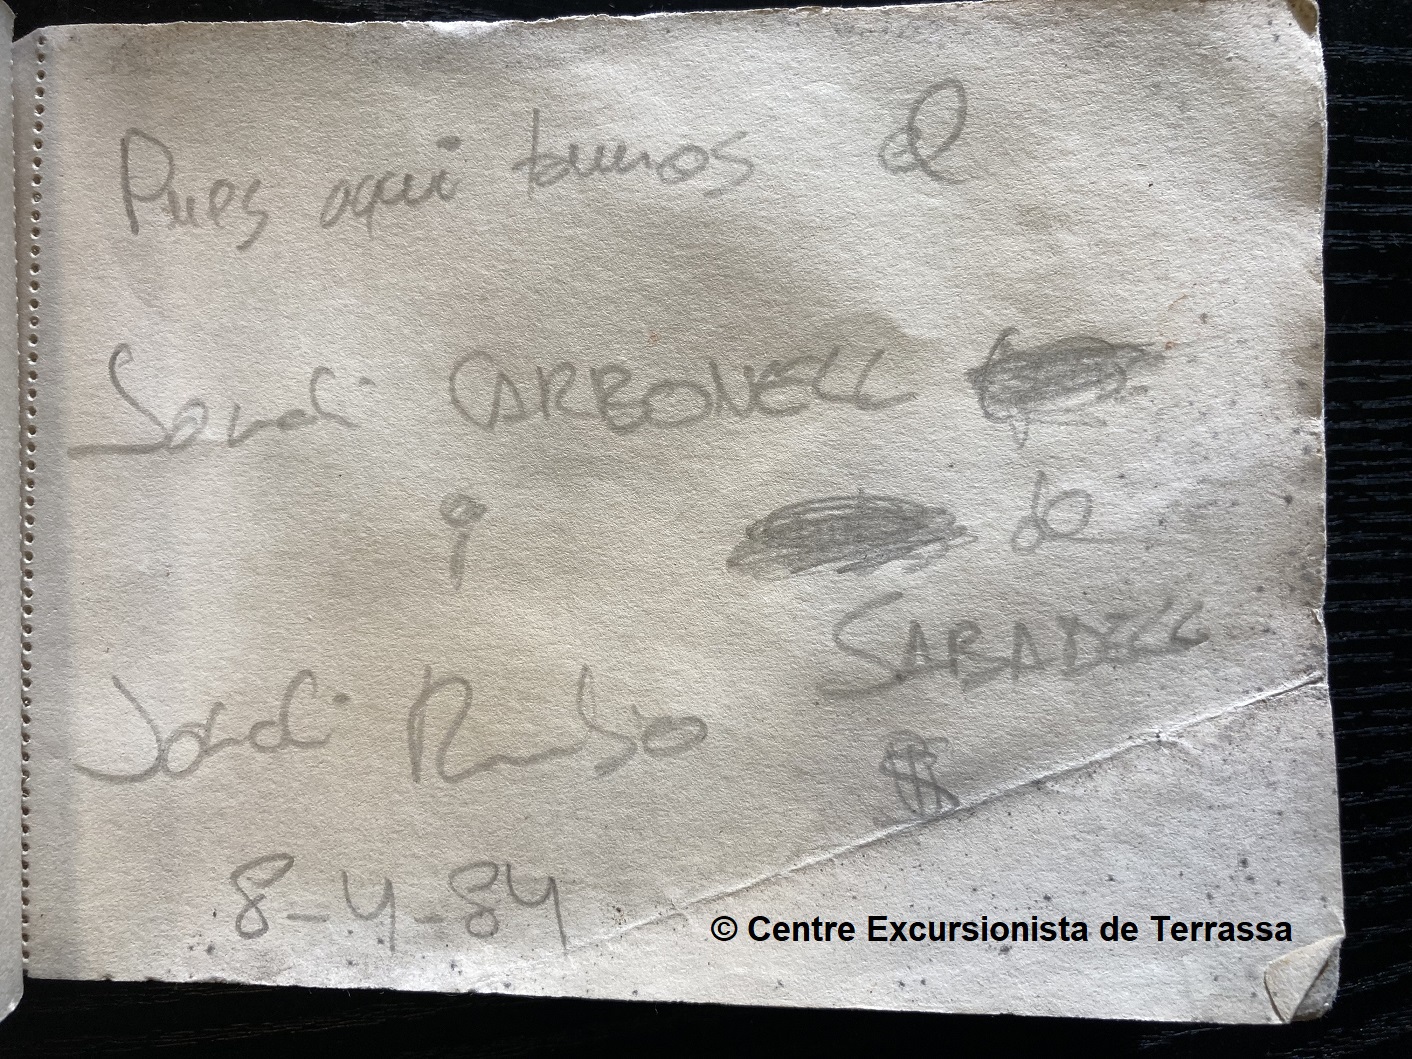 Pues aqui tamos el
Jordi CARBONELL
i
de
SABADELL
Jordi Rubio
8-4-84
© Centre Excursionista de Terrassa